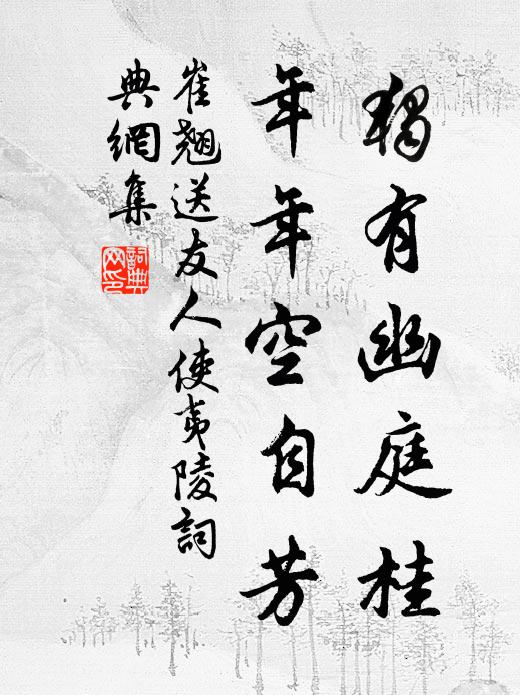 獨有幽庭桂
年年空自芳
崔翹送友人使夷陵詞
典網集
詞典
网印